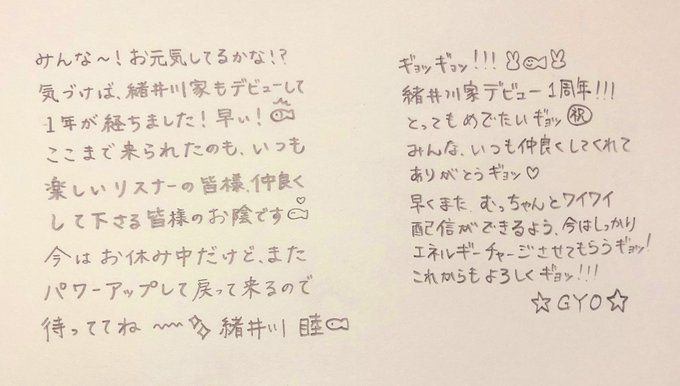 みんな～！お元気してるかな！？
気づけば、緒井川家もデビューして
1年が経ちました！早い！
ここまで来られたのも、いつも
楽しいリスナーの皆様、仲良く
して下さる皆様のお陰です
今はお休み中だけど、また
パワーアップして戻って来るので
待っててね 〰 緒井川 睦
ギョッギョッ！！！
緒井川家デビュー1周年！！！
とってもめでたいギョッ㊗
みんな、いつも仲良くしてくれて
ありがとうギョッ♡
早くまた、むっちゃんとワイワイ
配信ができるよう、今はしっかり
エネルギーチャージさせてもらうギョッ！
これからもよろしくギョッ！！！
☆GYO☆